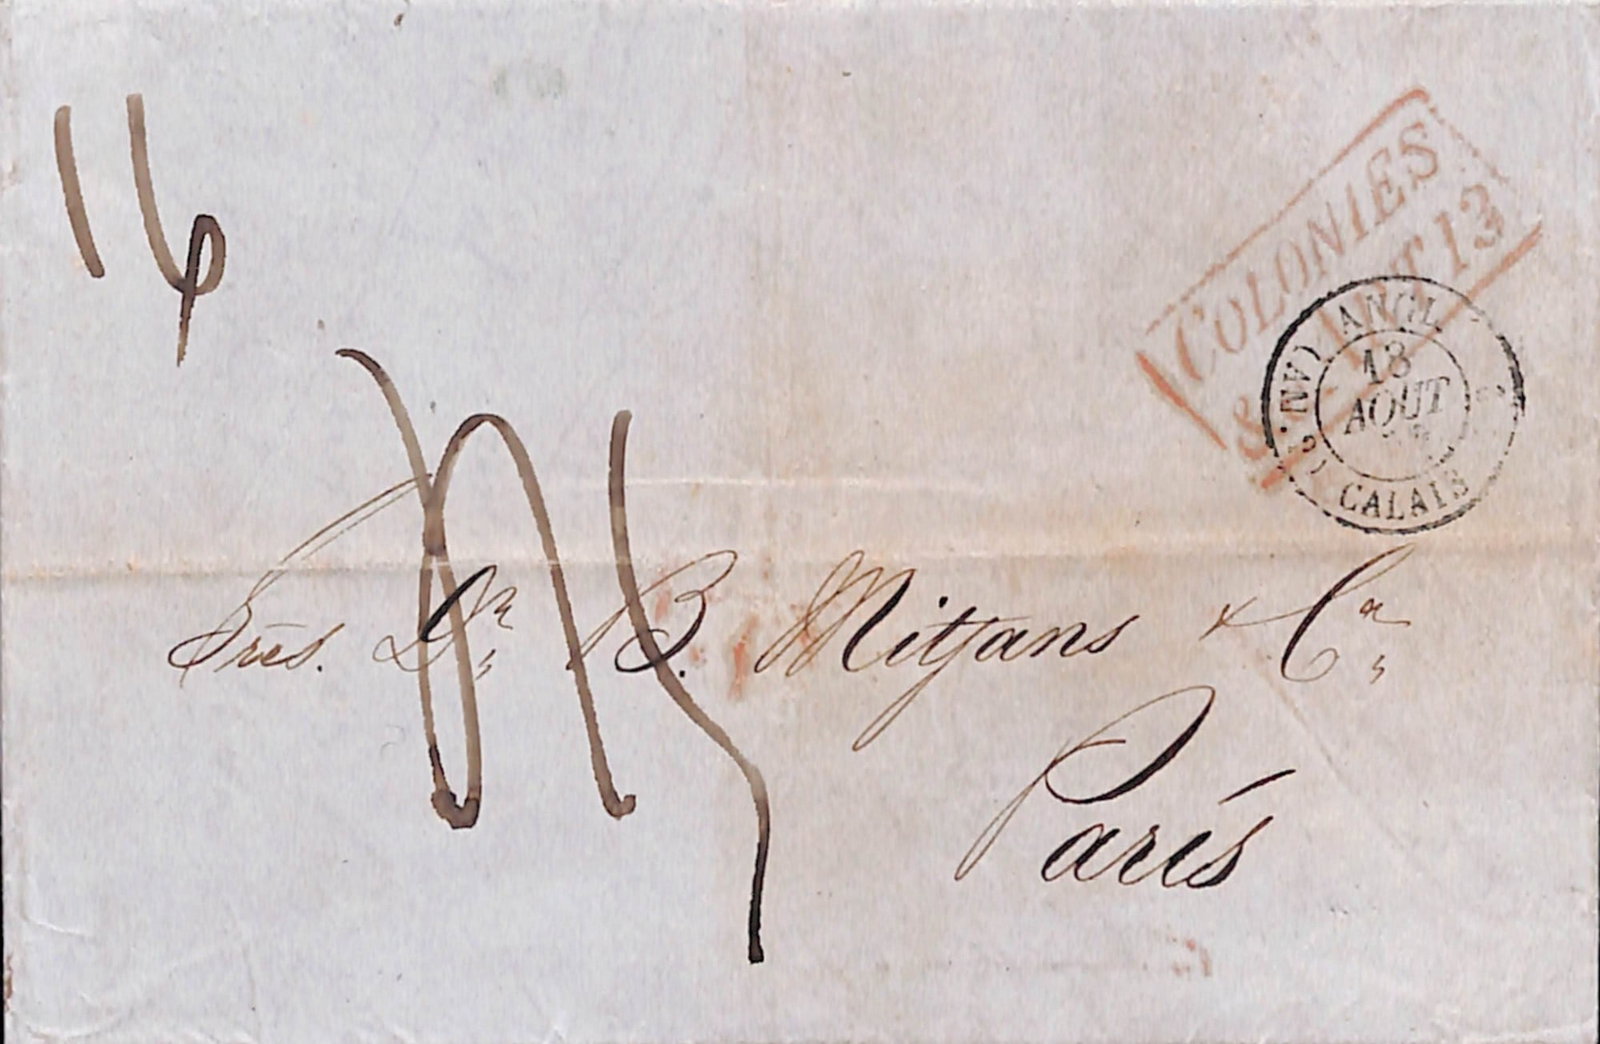 16
COLONIES
&c. ART 13
(E. NV) ANGL.
18
AOUT
CALAIS
Sres. Dn. B. Mitjans & Ca.
París